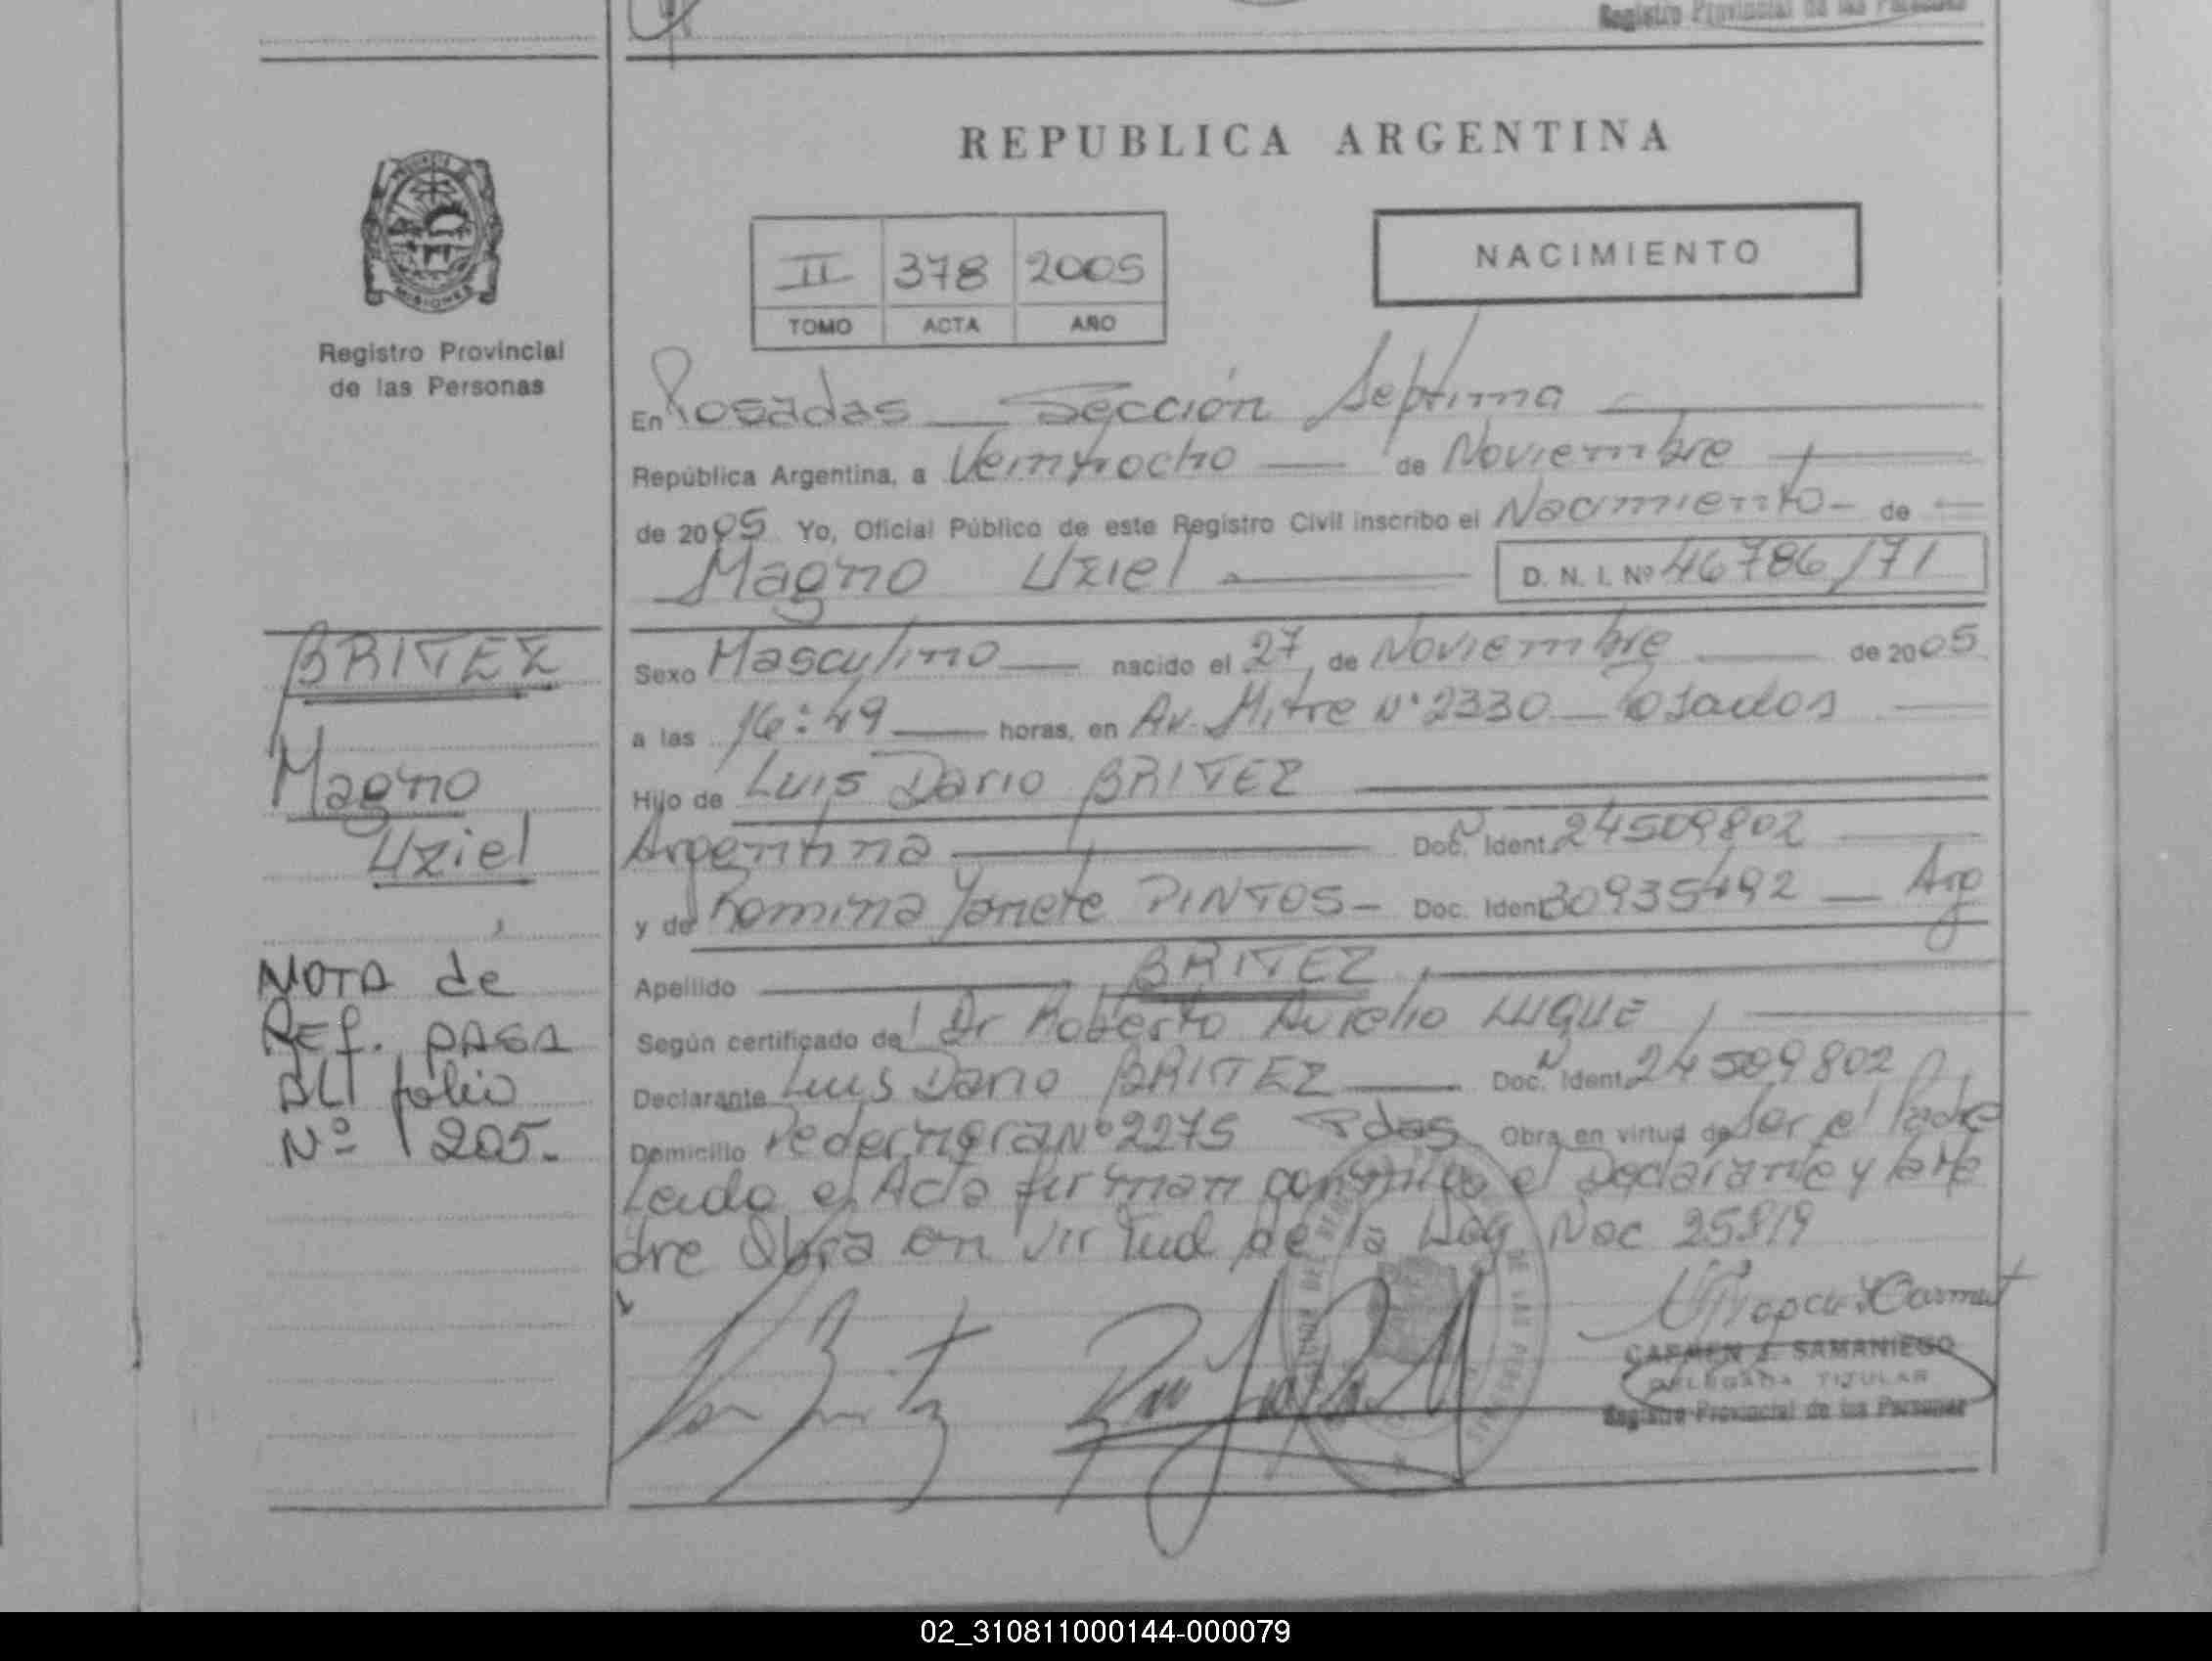 Registro Provincial de las Personas
REPUBLICA ARGENTINA
NACIMIENTO
II 378 2005
TOMO ACTA AÑO
MISIONES
Registro Provincial
de las Personas
En Posadas Sección Septima
República Argentina, a Veintiocho de Noviembre
de 2005 Yo, Oficial Público de este Registro Civil inscribo el Nacimiento de
Magno Uziel D. N. I. Nº 46786171
BRITEZ
Magno
Uziel
NOTA de
REf. PASA
AL folio
Nº 205.
Sexo Masculino nacido el 27 de Noviembre de 2005
a las 16:49 horas, en Av. Mitre Nº 2330 Posadas
Hijo de Luis Dario BRITEZ
Argentina Doc. Ident. 24509802
y de Romina Yanete PINTOS - Doc. Ident. 30935492 Arg
Apellido BRITEZ
Según certificado de Dr Roberto Aurelio LUQUE
Declarante Luis Dario BRITEZ Doc. Ident. 24509802
Domicilio Pedernera Nº 2275 Pdas Obra en virtud de Ser el Padre
Leida el Acta firman conmigo el Declarante y la Ma
dre Obra en virtud de la Ley Nac 25819
CARMEN SAMANIEGO
DELEGADA TITULAR
Registro Provincial de las Personas
02_310811000144-000079